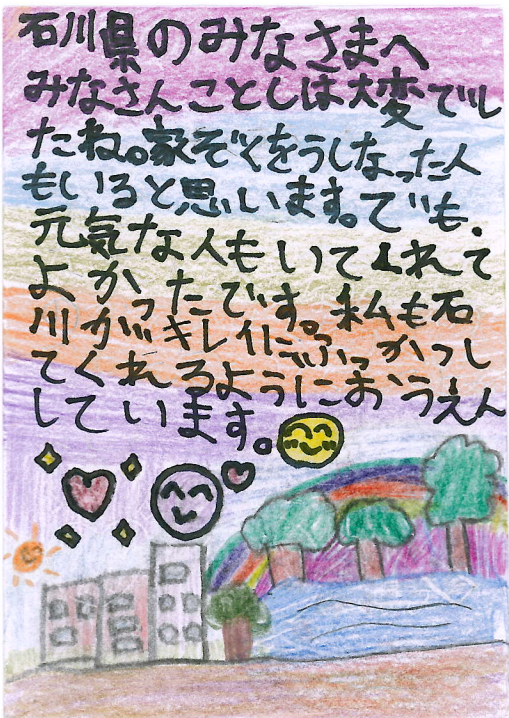 石川県のみなさまへ
みなさんことしは大変でし
たね。家ぞくをうしなった人
もいると思います。でも、
元気な人もいてくれて
よかったです。私も石
川がキレイにふっかつし
てくれるようにおうえん
しています。